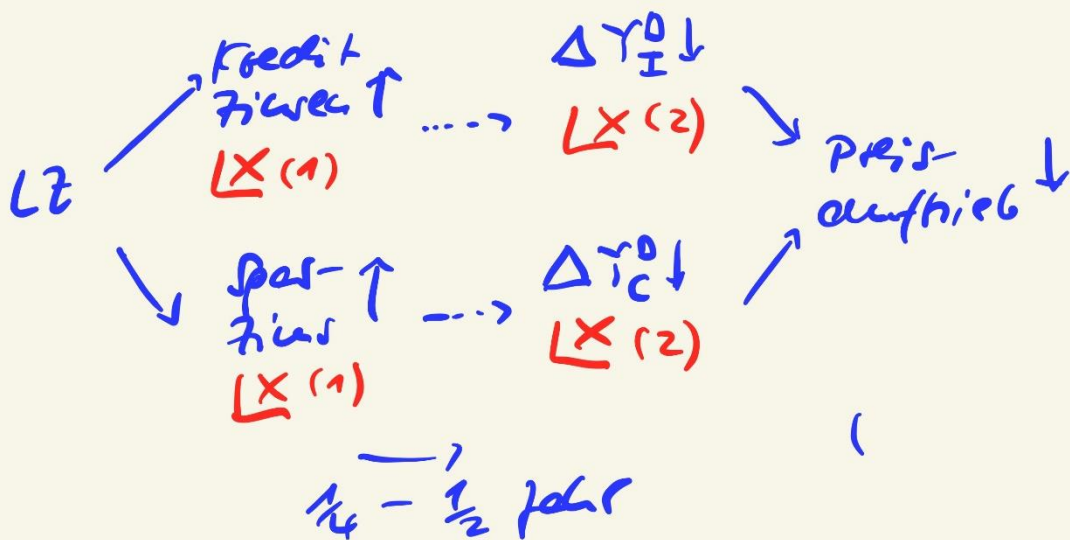 LZ
Kredit
Zinsen ↑
LX (1)
Δ Y^D_I ↓
LX (2)
Spar-
Zins ↑
LX (1)
Δ Y^D_C ↓
LX (2)
Preis-
auftrieb ↓
(
1/4 - 1/2 Jahr